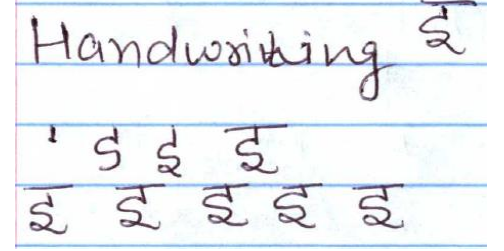 Handwriting इ
इ
इ इ इ इ इ